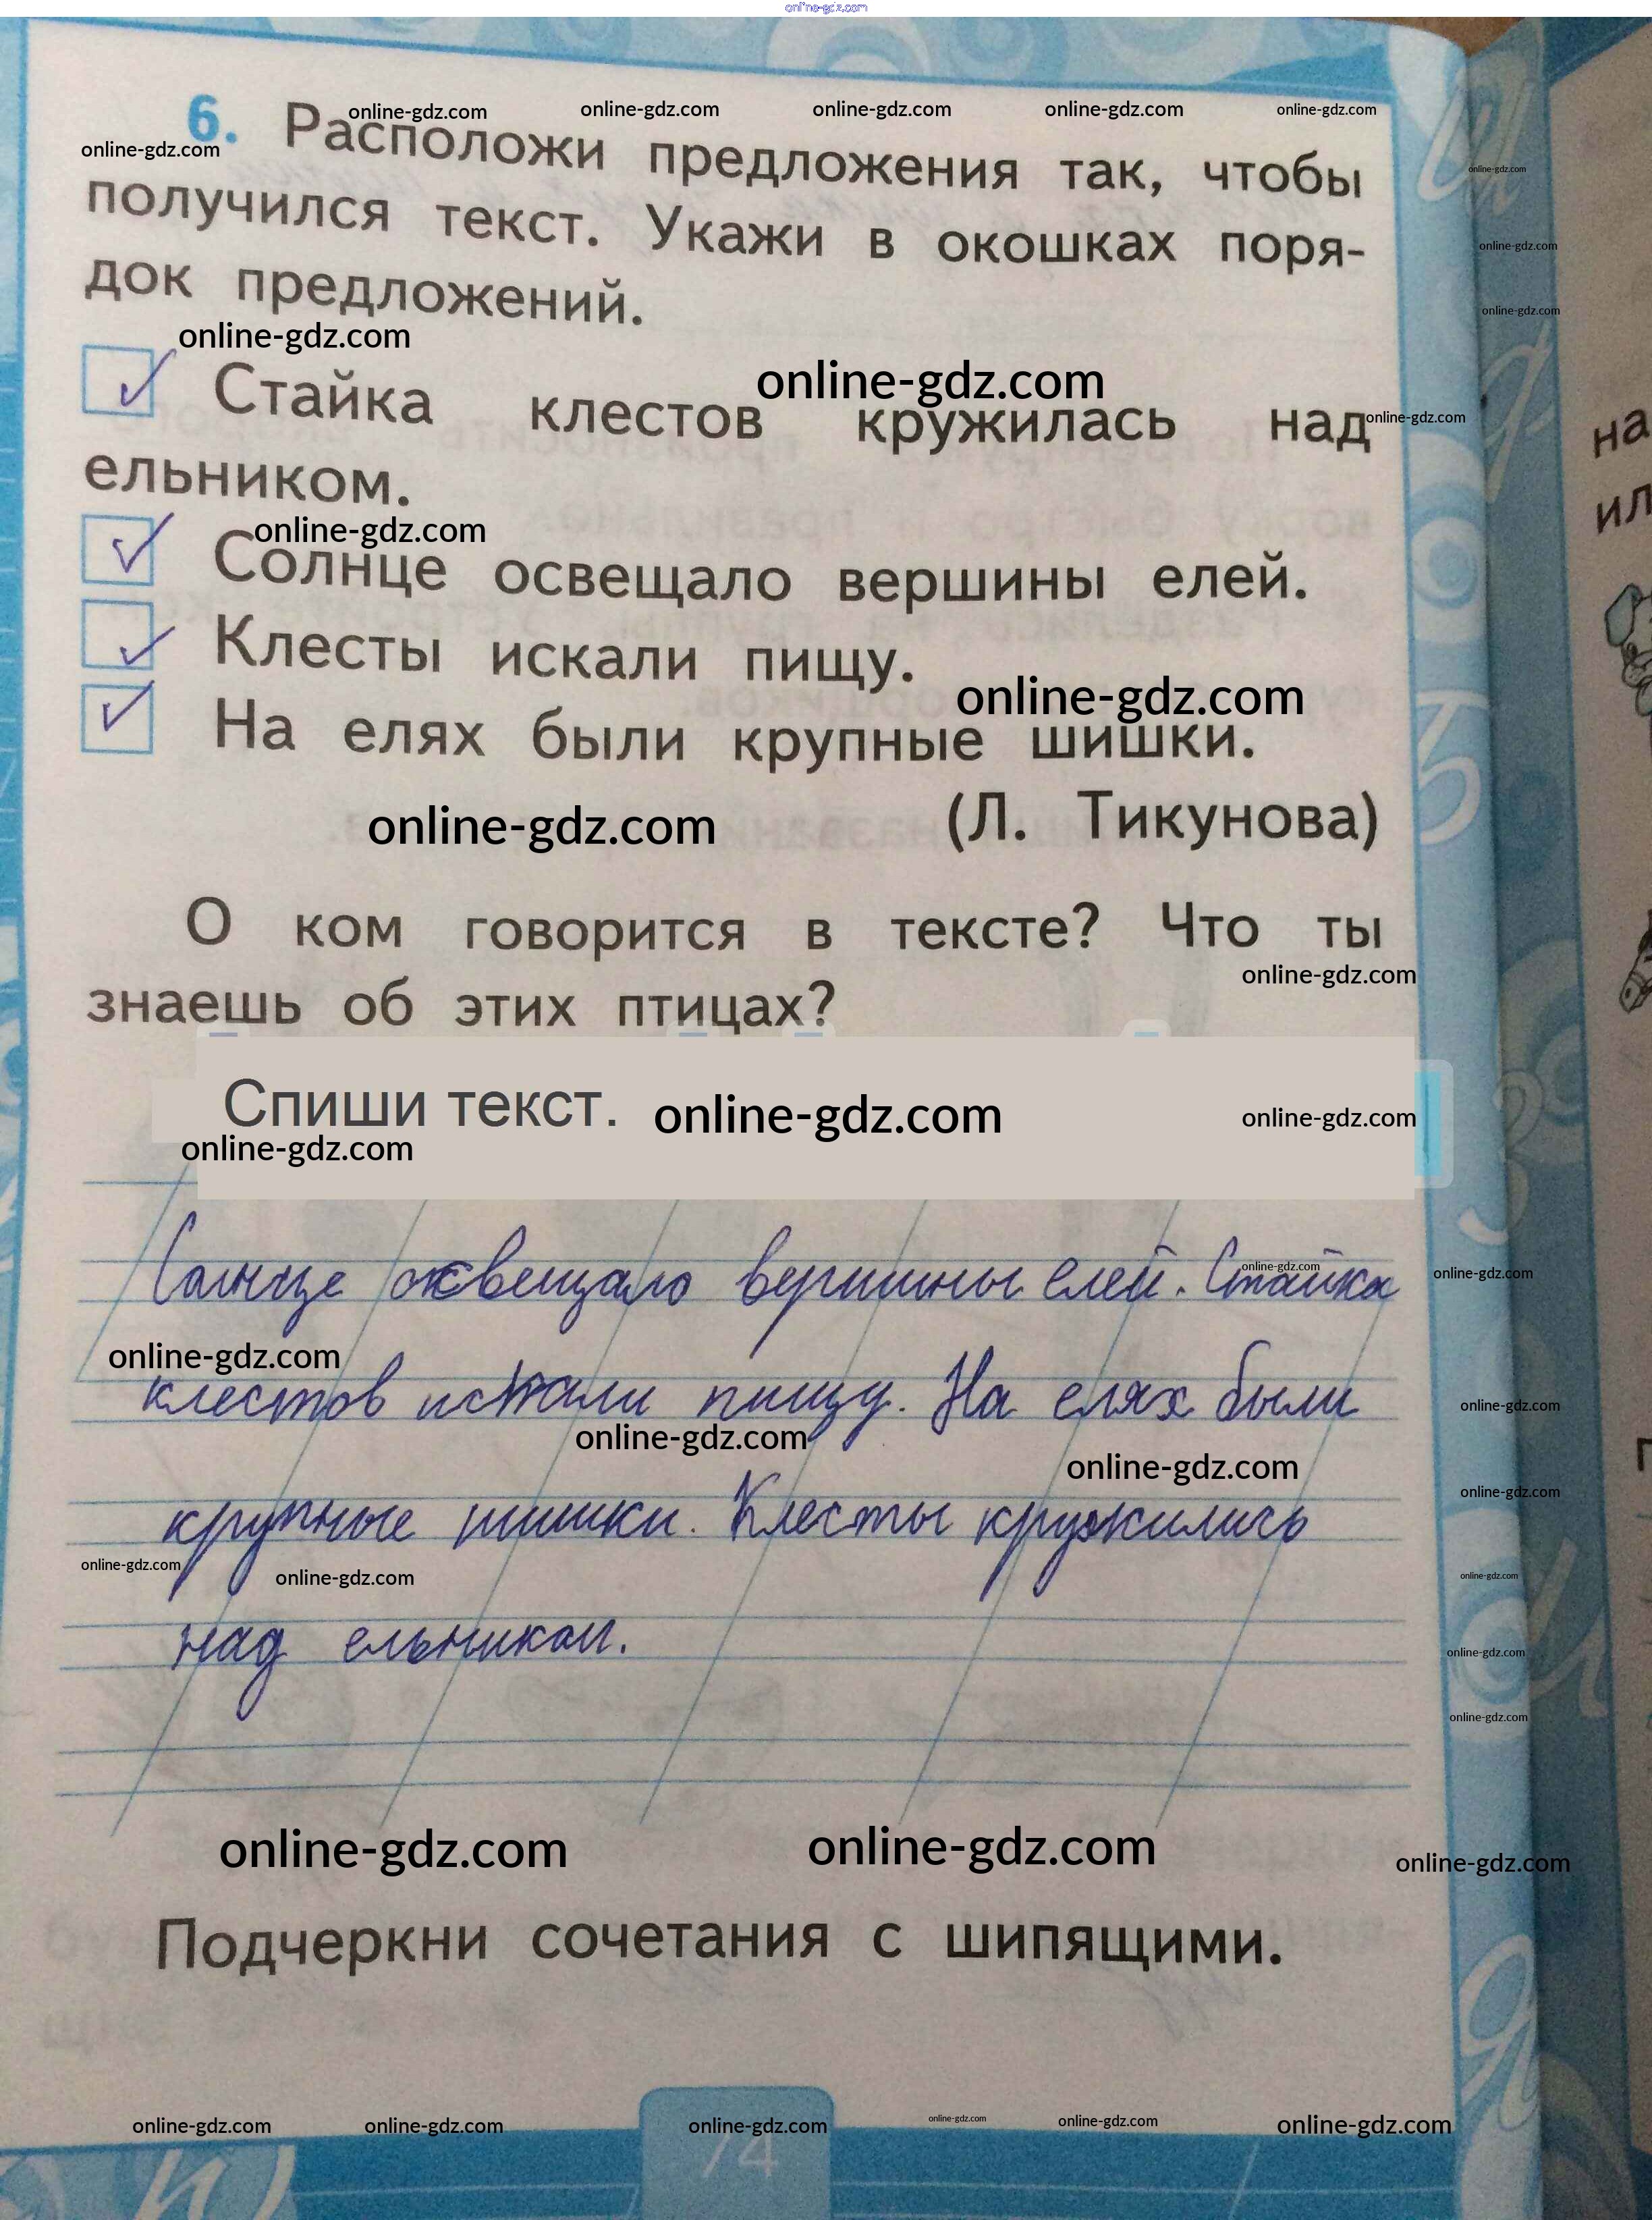 online-gdz.com
6. Расположи предложения так, чтобы
получился текст. Укажи в окошках поря-
док предложений.
Стайка клестов кружилась над
ельником.
Солнце освещало вершины елей.
Клесты искали пищу.
На елях были крупные шишки.
(Л. Тикунова)
О ком говорится в тексте? Что ты
знаешь об этих птицах?
Спиши текст.
online-gdz.com
Солнце освещало вершины елей. Стайка
клестов искали пищу. На елях были
крупные шишки. Клесты кружились
над ельником.
online-gdz.com
Подчеркни сочетания с шипящими.
74
на
ил